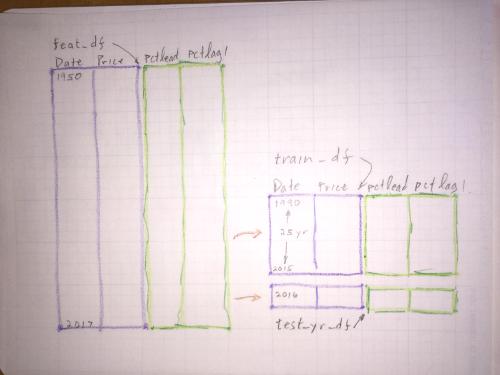 feat_df
Date Price pctlead pctlag1
1950
2017
train_df
Date Price pctlead pctlag1
1990
25 yr
2015
2016
test_yr_df